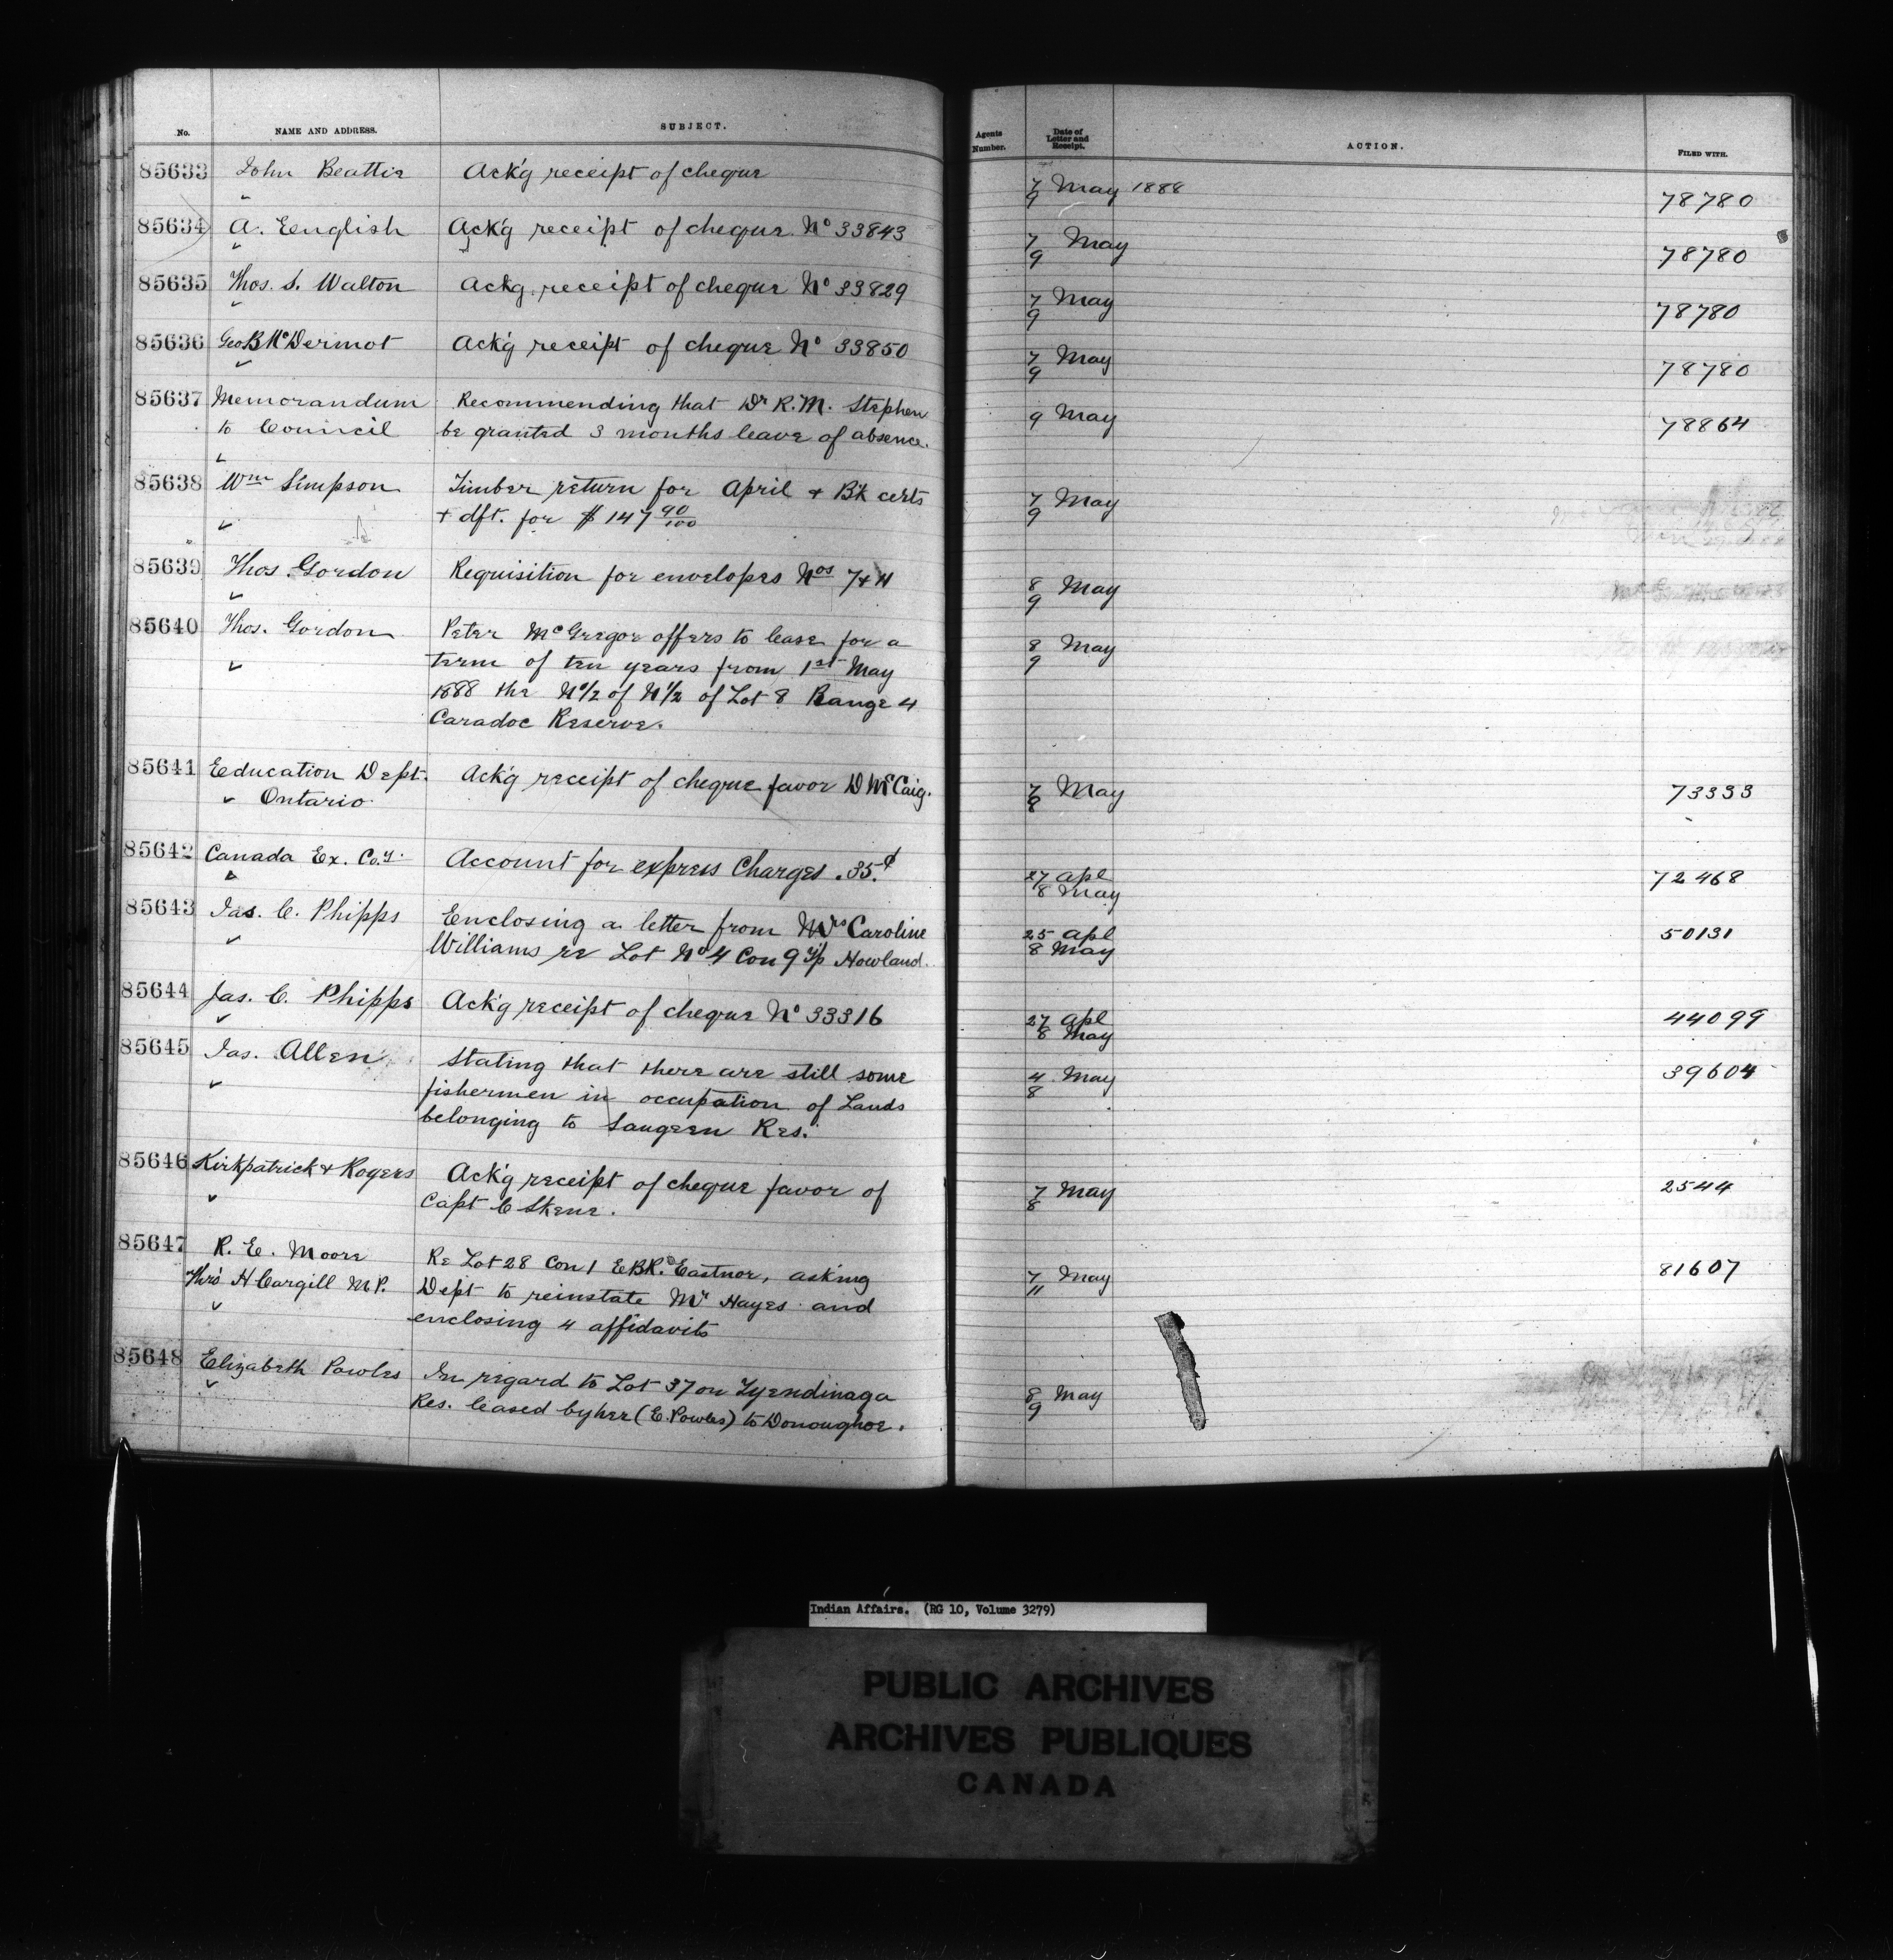 No. NAME AND ADDRESS. SUBJECT. Agents Number. Date of Letter and Receipt. ACTION. FILED WITH.
85633 John Beattie Ack'g receipt of cheque 7/9 May 1888 78780
85634 A. English Ack'g receipt of cheque No 33843 7/9 May 78780
85635 Thos. S. Walton Ackg. receipt of cheque No 33829 7/9 May 78780
85636 Geo B McDermot Ack'g receipt of cheque No 33850 7/9 May 78780
85637 Memorandum Recommending that Dr R. M. Stephen 9 May 78864
to Council be granted 3 months leave of absence.
85638 Wm Simpson Timber return for April + B'k certs 7/9 May
+ dft. for $147 90/100
85639 Thos. Gordon Requisition for envelopes Nos 7 + 11 8/9 May
85640 Thos. Gordon Peter McGregor offers to lease for a 8/9 May
term of ten years from 1st May
1888 the N1/2 of N1/2 of Lot 8 Range 4
Caradoc Reserve.
85641 Education Dept. Ack'g receipt of cheque favor D McCaig. 7/8 May 73333
Ontario
85642 Canada Ex. Coy. Account for express Charges .35.¢ 27 Apl 72468
8 May
85643 Jas. C. Phipps Enclosing a letter from Mrs Caroline 25 Apl 50131
Williams re Lot No 4 Con 9 T/p Howland. 8 May
85644 Jas. C. Phipps Ack'g receipt of cheque No 33316 27 Apl 44099
8 May
85645 Jas. Allen Stating that there are still some 4/8 May 39604
fishermen in occupation of Lands
belonging to Saugeen Res.
85646 Kirkpatrick & Rogers Ack'g receipt of cheque favor of 7/8 May 2544
Capt C Skene.
85647 R. E. Moore Re Lot 28 Con 1 E B R.d Eastnor, asking 7/11 May 81607
Thro' H Cargill M.P. Dept to reinstate Mr Hayes and
enclosing 4 affidavits
85648 Elizabeth Powles In regard to Lot 37 on Tyendinaga 8/9 May
Res. leased by her (E. Powles) to Donoughoe.
Indian Affairs. (RG 10, Volume 3279)
PUBLIC ARCHIVES
ARCHIVES PUBLIQUES
CANADA